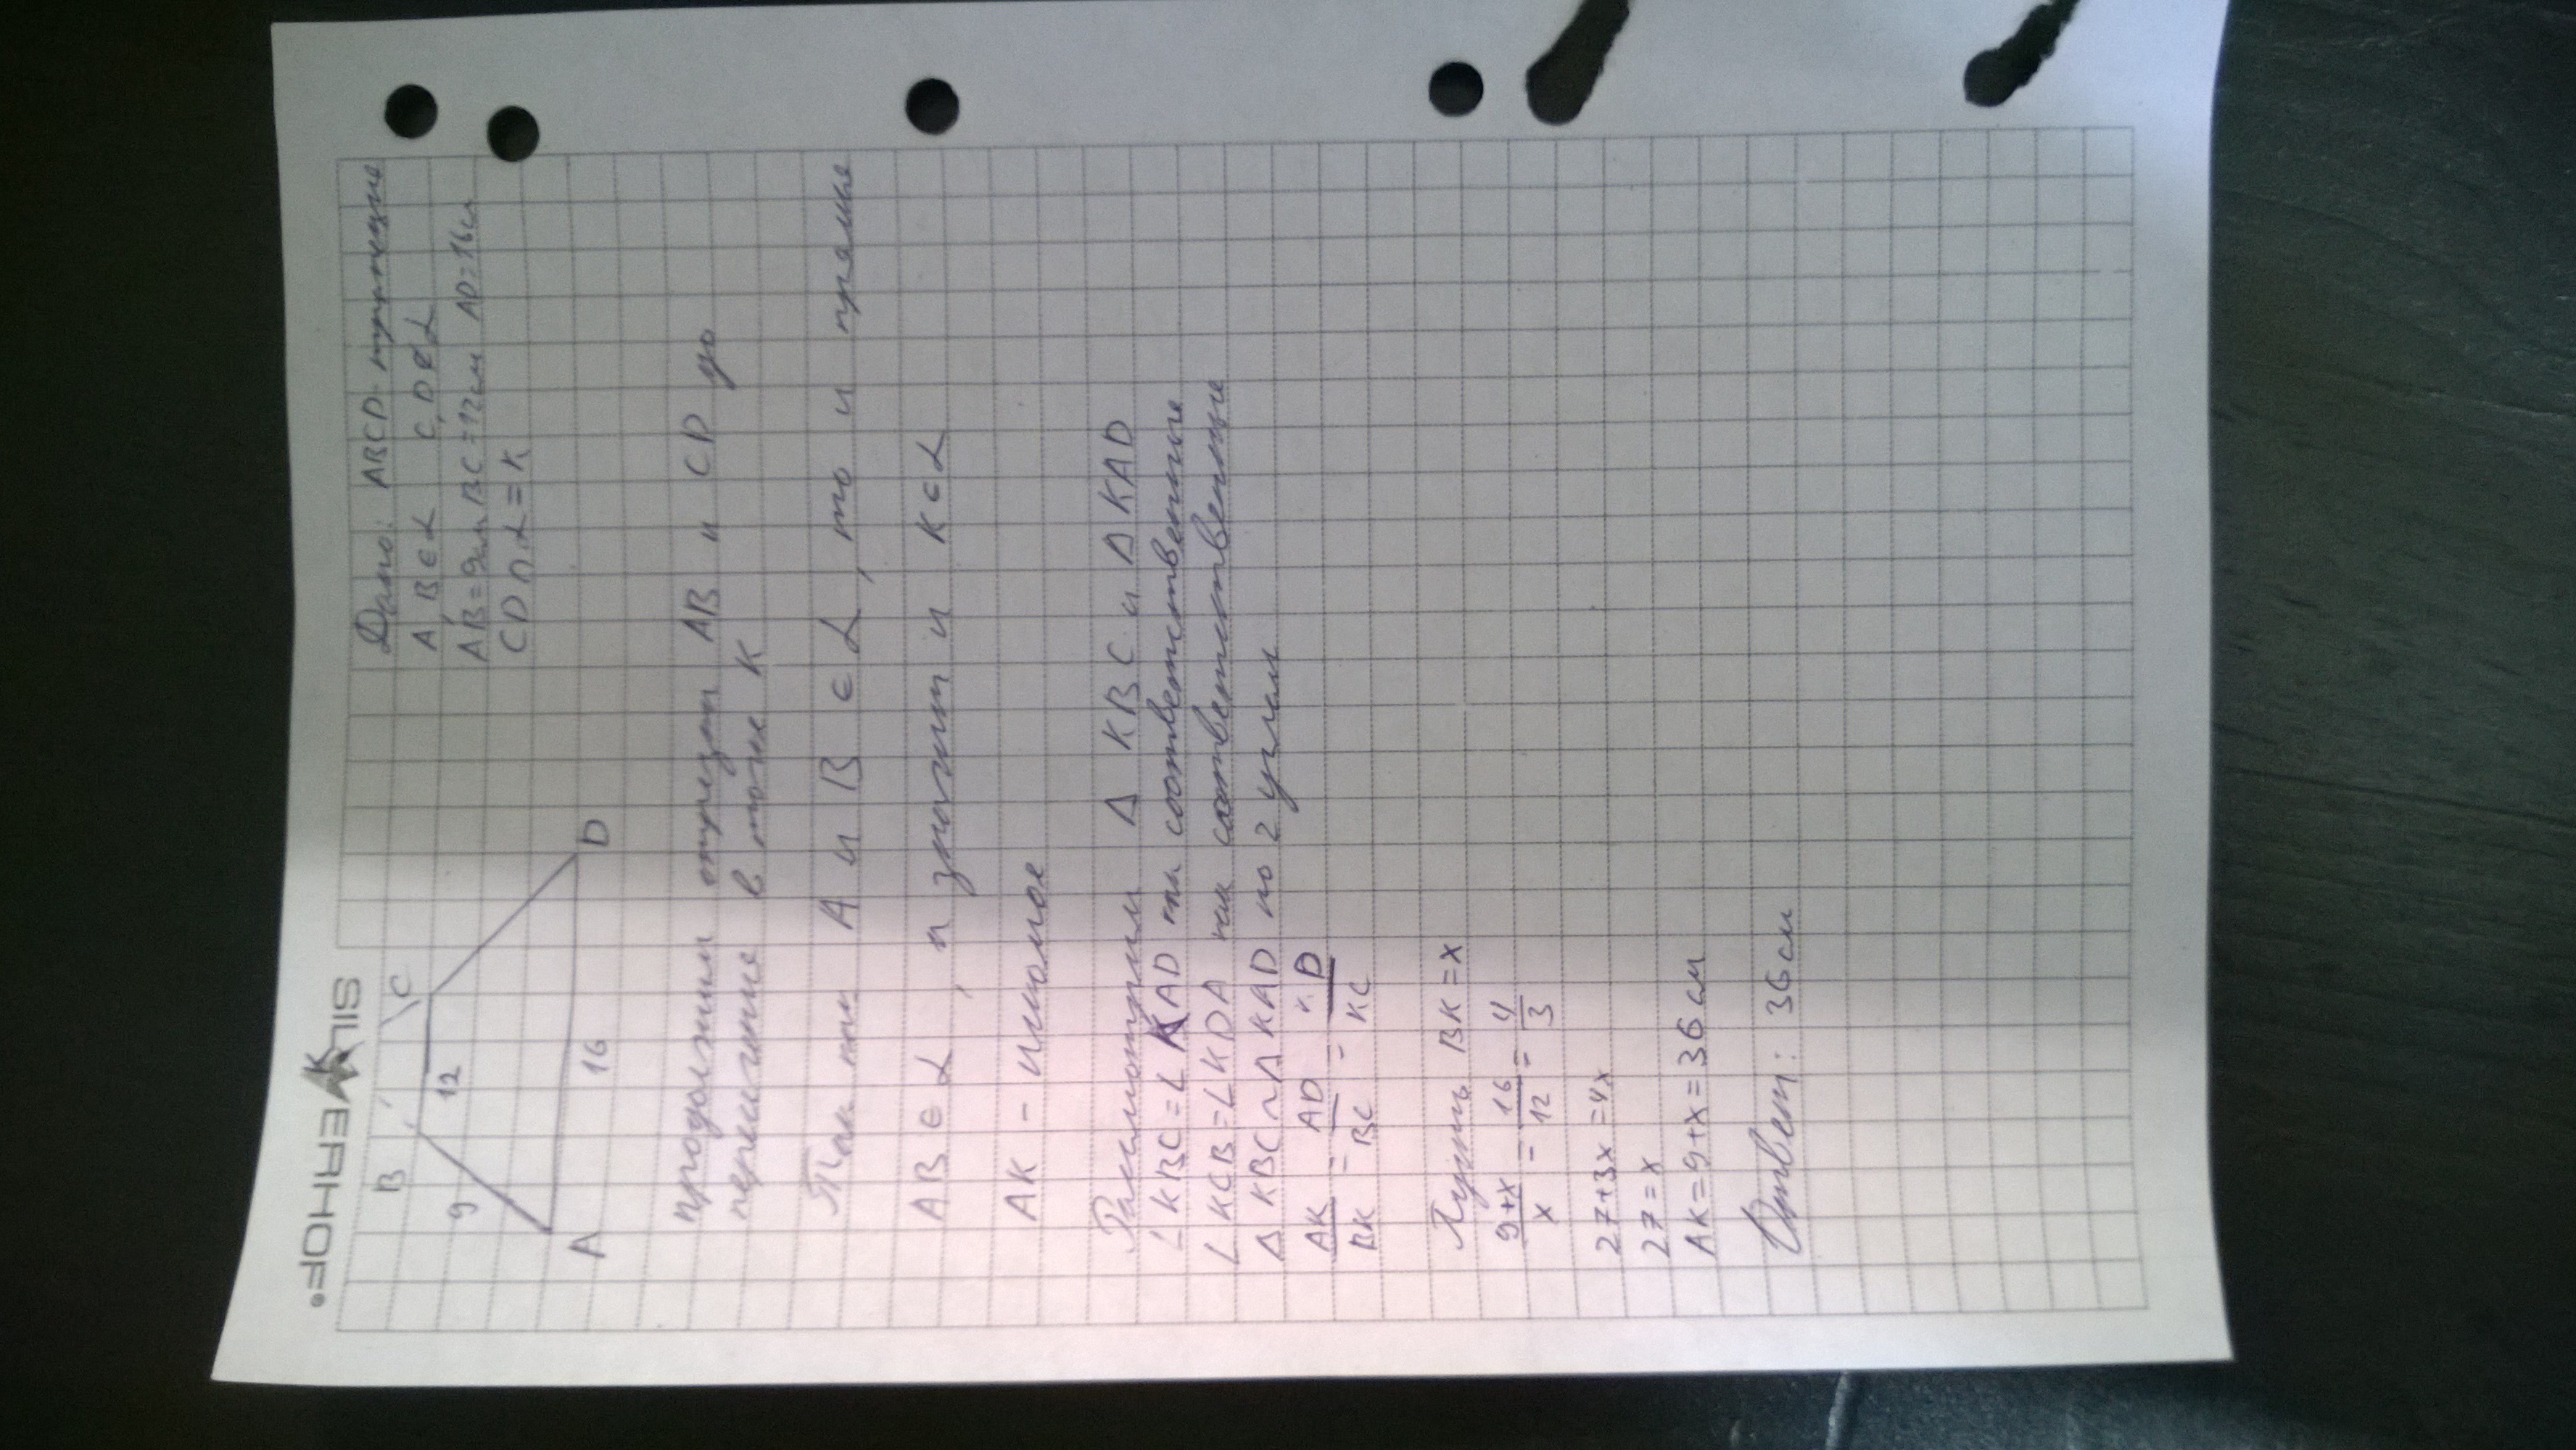 SILWERHOF®
K
Дано: ABCD- трапеция
A, B ∈ α C, D ∉ α
AB = 9см BC = 12см AD = 16см
CD ∩ α = K
B C
9 12
A 16 D
продолжим отрезки AB и CD до
пересечение в точке K
Так как A и B ∈ α, то и прямая
AB ∈ α, а значит и K ∈ α
AK - искомое
Рассмотрим Δ KBC и Δ KAD
∠ KBC = ∠ KAD как соответственные
∠ KCB = ∠ KDA как соответственные
Δ KBC ~ Δ KAD по 2 углам
AK/BK = AD/BC = KD/KC
Пусть BK = x
9+x/x = 16/12 = 4/3
27+3x = 4x
27 = x
AK = 9+x = 36 см
Ответ: 36 см